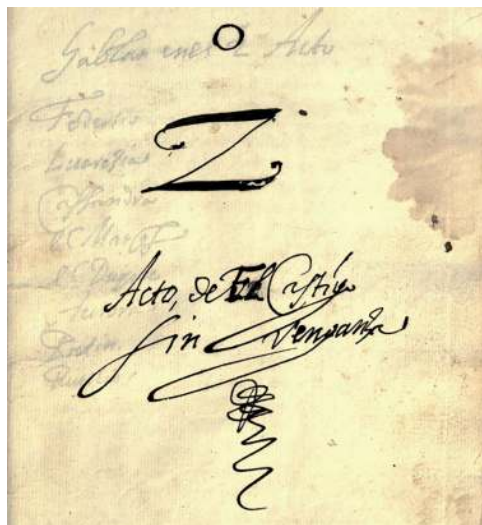 o
Hablan enel 2 Acto
2
Federico
Lucrezia
Cassandra
el Marq
el Duque
Batin
Acto, de El Castigo
sin Venganza